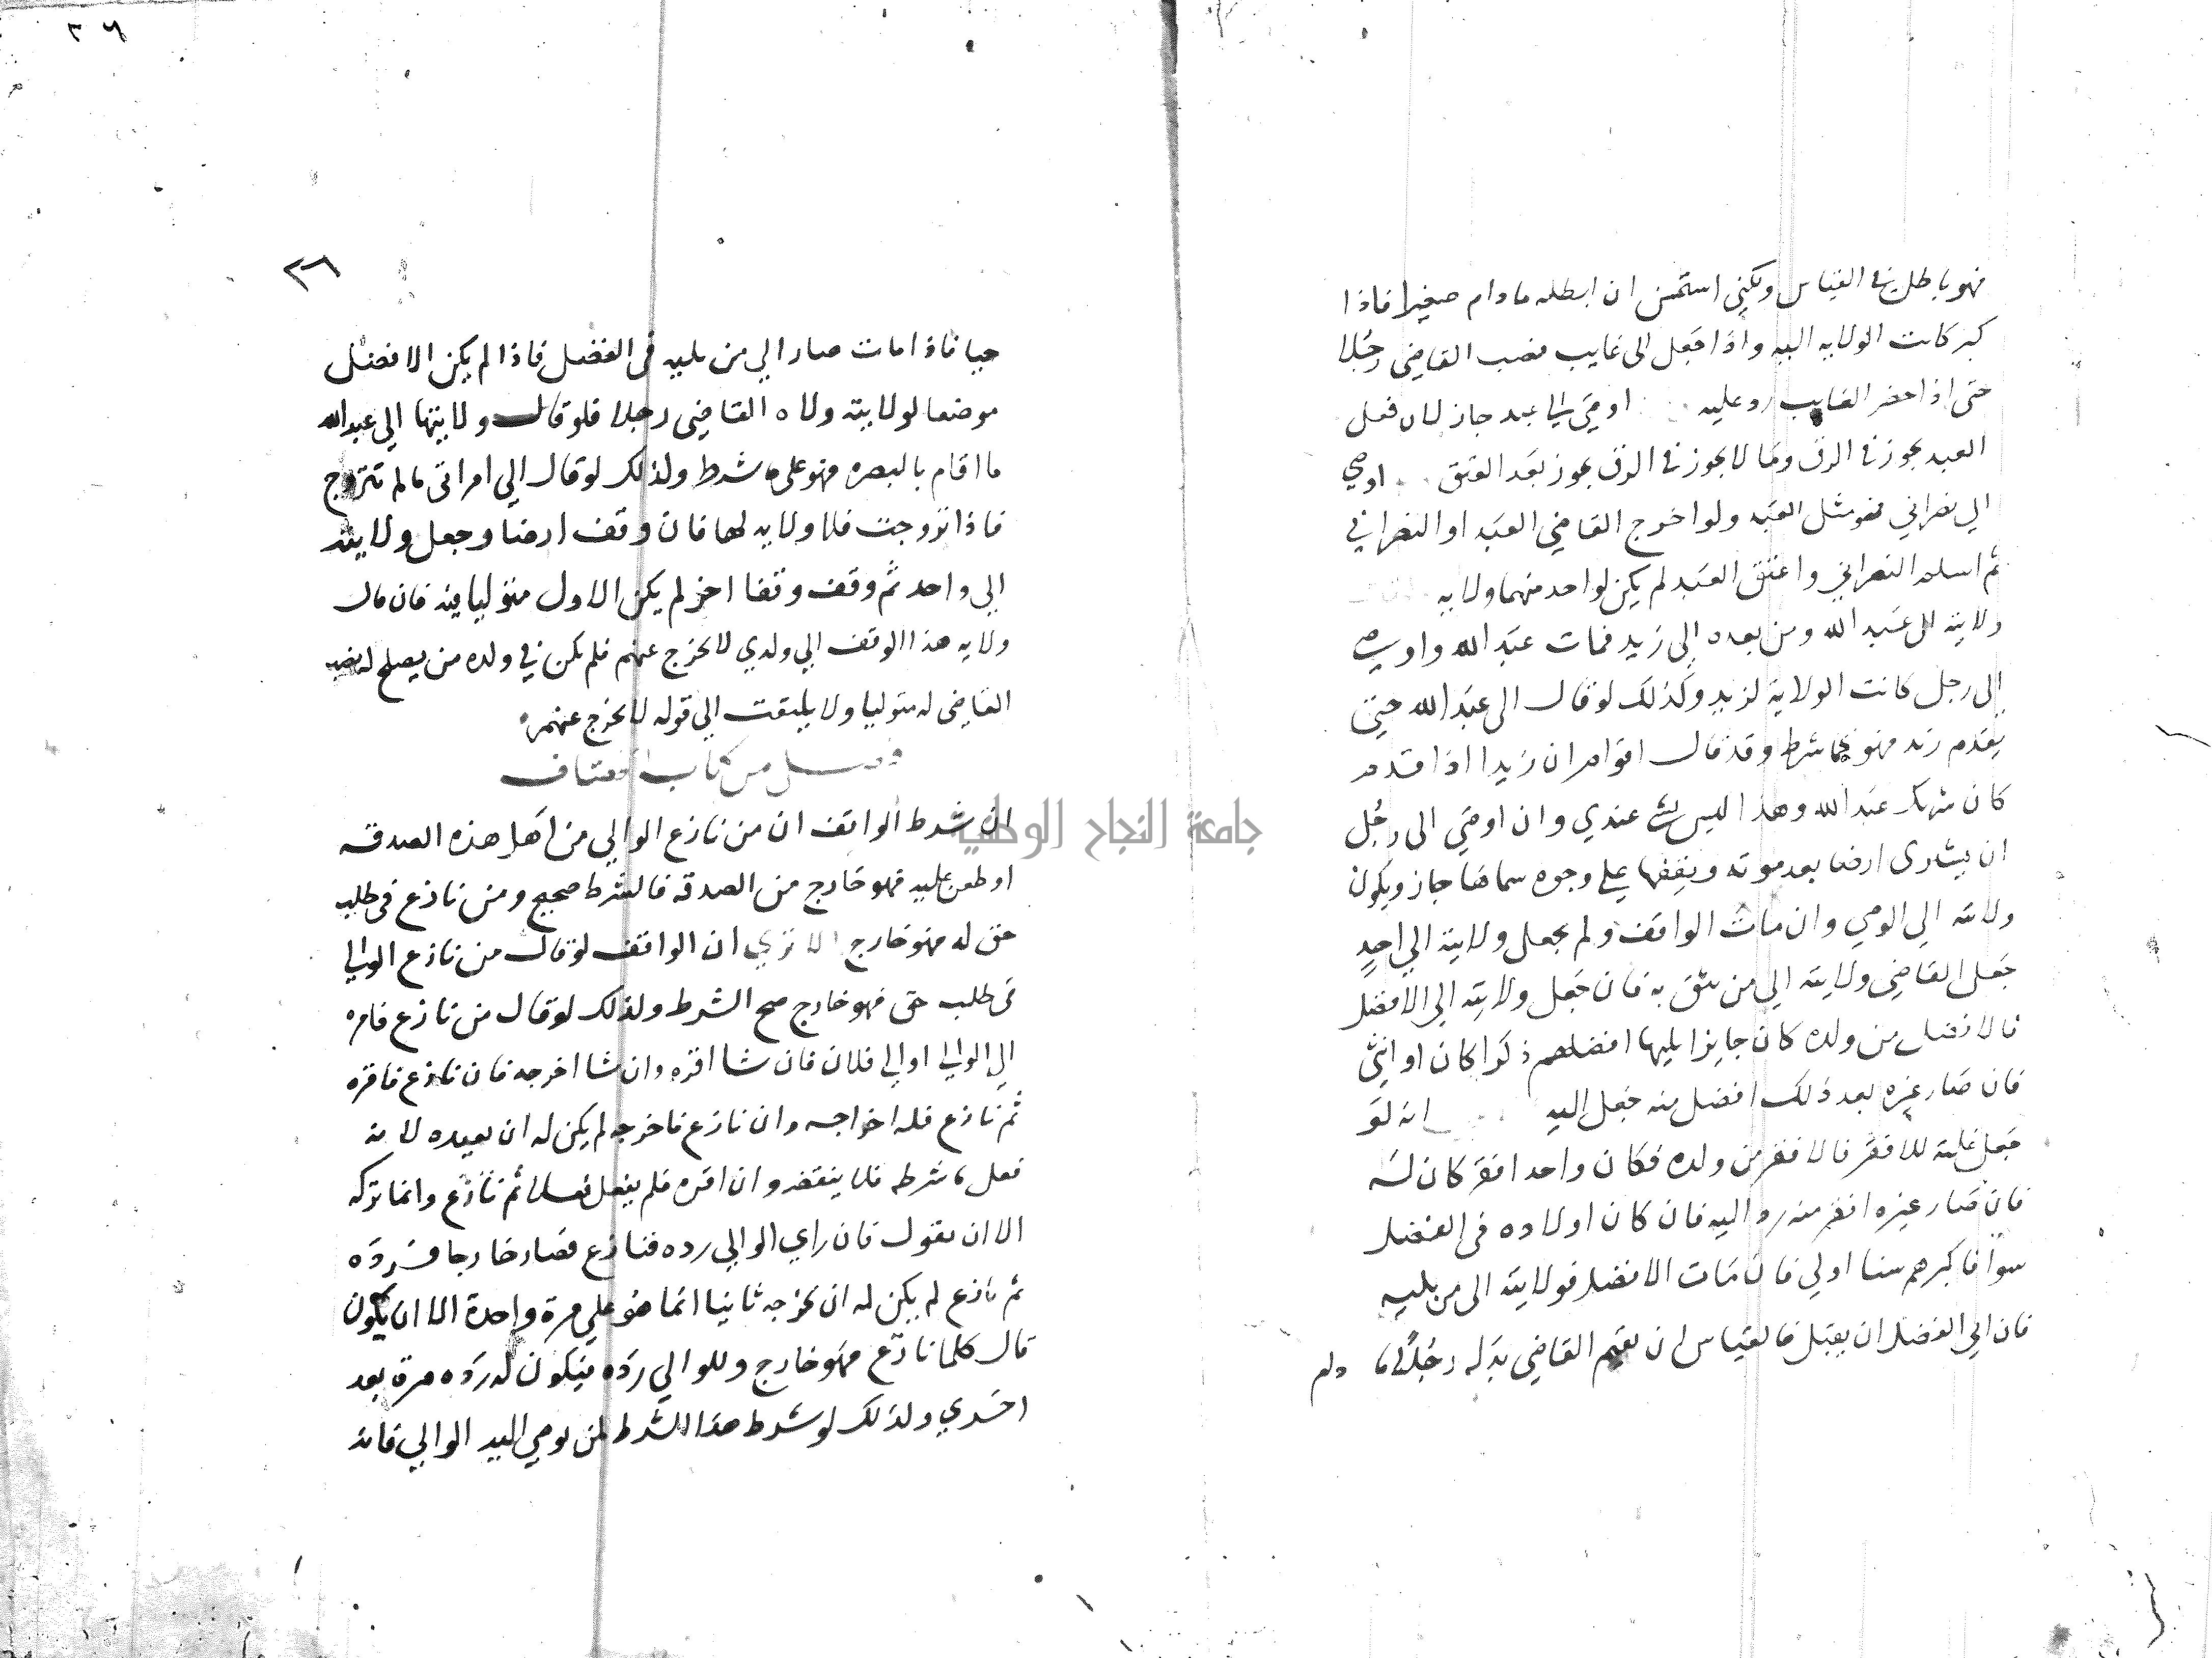 فهو باطل في القياس ولكني استحسن ان ابطله ما دام صغيرا فاذا
كبر كانت الولايه اليه واذا جعل الى غايب نصب القاضي رجلا
حتى اذا حضر الغايب رد عليه اوصى الي عبد جاز لان فعل
العبد يجوز في الرق وما لا يجوز في الرق يجوز بعد العتق اوصي
الي نصراني فهو مثل العبد ولو اخرج القاضي العبد او النصراني
ثم اسلم النصراني واعتق العبد لم يكن لواحد منهما ولايه
ولايته الى عبد الله ومن بعده الى زيد فمات عبد الله واوصى
الى رجل كانت الولاية لزيد وكذلك لو قال الى عبد الله حتى
يقدم زيد فهو كما شرط وقد قال اقوام ان زيدا اذا قدم
كان شريك عبد الله وهذا ليس بشي عندي وان اوصى الى رجل
ان يشترى ارضا بعد موته ويقفها علي وجوه سماها جاز ويكون
ولايته الي الوصي وان مات الواقف ولم يجعل ولايته الي احد
جعل القاضي ولايته الي من يثق به فان جعل ولايته الي الافضل
فالافضل من ولده كان جايزا يليها افضلهم ذكرا كان او انثى
فان صار غيره بعد ذلك افضل منه جعل اليه انه لو
جعل غلته للافقر فالافقر من ولده فكان واحد افقر كان له
فان صار غيره افقر منه رد اليه فان كان اولاده في الفضل
سوا فاكبرهم سنا اولي فان مات الافضل فولايته الى من يليه
فان ابي الفضل ان يقبل فالقياس ان يقيم القاضي بدله رجلا ما دام
٢٦
حيا فاذا مات صار الي من يليه في الفضل فاذا لم يكن الافضل
موضعا لولايته ولاه القاضي رجلا فلو قال ولايتها الي عبد الله
ما اقام بالبصره فهو على شرط وكذلك لو قال الي امراتي ما لم تتزوج
فاذا تزوجت فلا ولايه لها فان وقف ارضا وجعل ولايته
الي واحد ثم وقف وقفا اخر لم يكن الاول متوليا فيه فان قال
ولايه هذا الوقف الي ولدي لا يخرج عنهم فلم يكن في ولده من يصلح له نصب
القاضي له متوليا ولا يلتفت الي قوله لا يخرج عنهم
فصل من كتاب
ان شرط الواقف ان من نازع الوالي من اهل هذه الصدقه
او طعن عليه فهو خارج من الصدقه فالشرط صحيح ومن نازع في طلب
حق له فهو خارج الا تري ان الواقف لو قال من نازع الوالي
في طلب حق فهو خارج صح الشرط وكذلك لو قال من نازع فامره
الي الوالي او الي فلان فان شا اقره وان شا اخرجه فان نازع فاقره
ثم نازع فله اخراجه وان نازع فاخرجه لم يكن له ان يعيده لانه
فعل ما شرطه فلا ينقضه وان اقره فلم يفعل فعلا ثم نازع وانما تركه
الا ان يقول فان راي الوالي رده فنازع فصار خارجا فرده
ثم نازع لم يكن له ان يخرجه ثانيا انما هو علي مرة واحدة الا ان يكون
قال كلما نازع فهو خارج وللوالي رده فيكون له رده مرة بعد
اخري وكذلك لو شرط هذا الشرط لمن يوصي اليه الوالي فانه
جامعة النجاح الوطنية